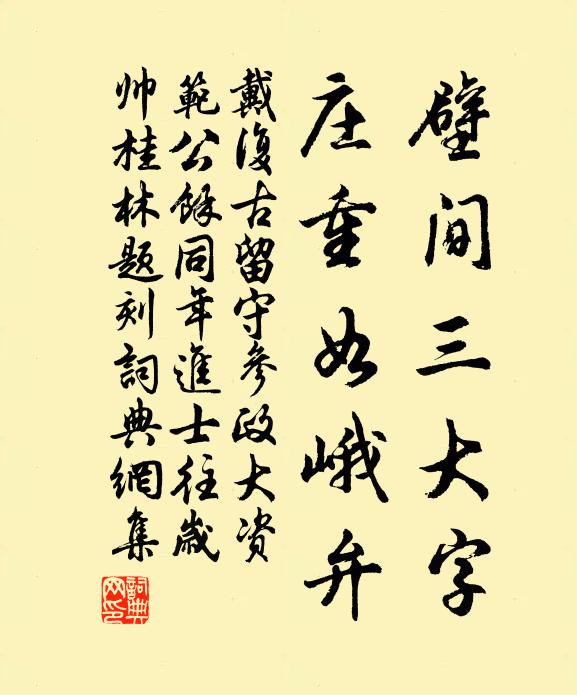 壁间三大字
庄重如峨弁
戴復古留守參政大资
範公餘同年進士往歲
帅桂林题刻詞典網集
詞典网印